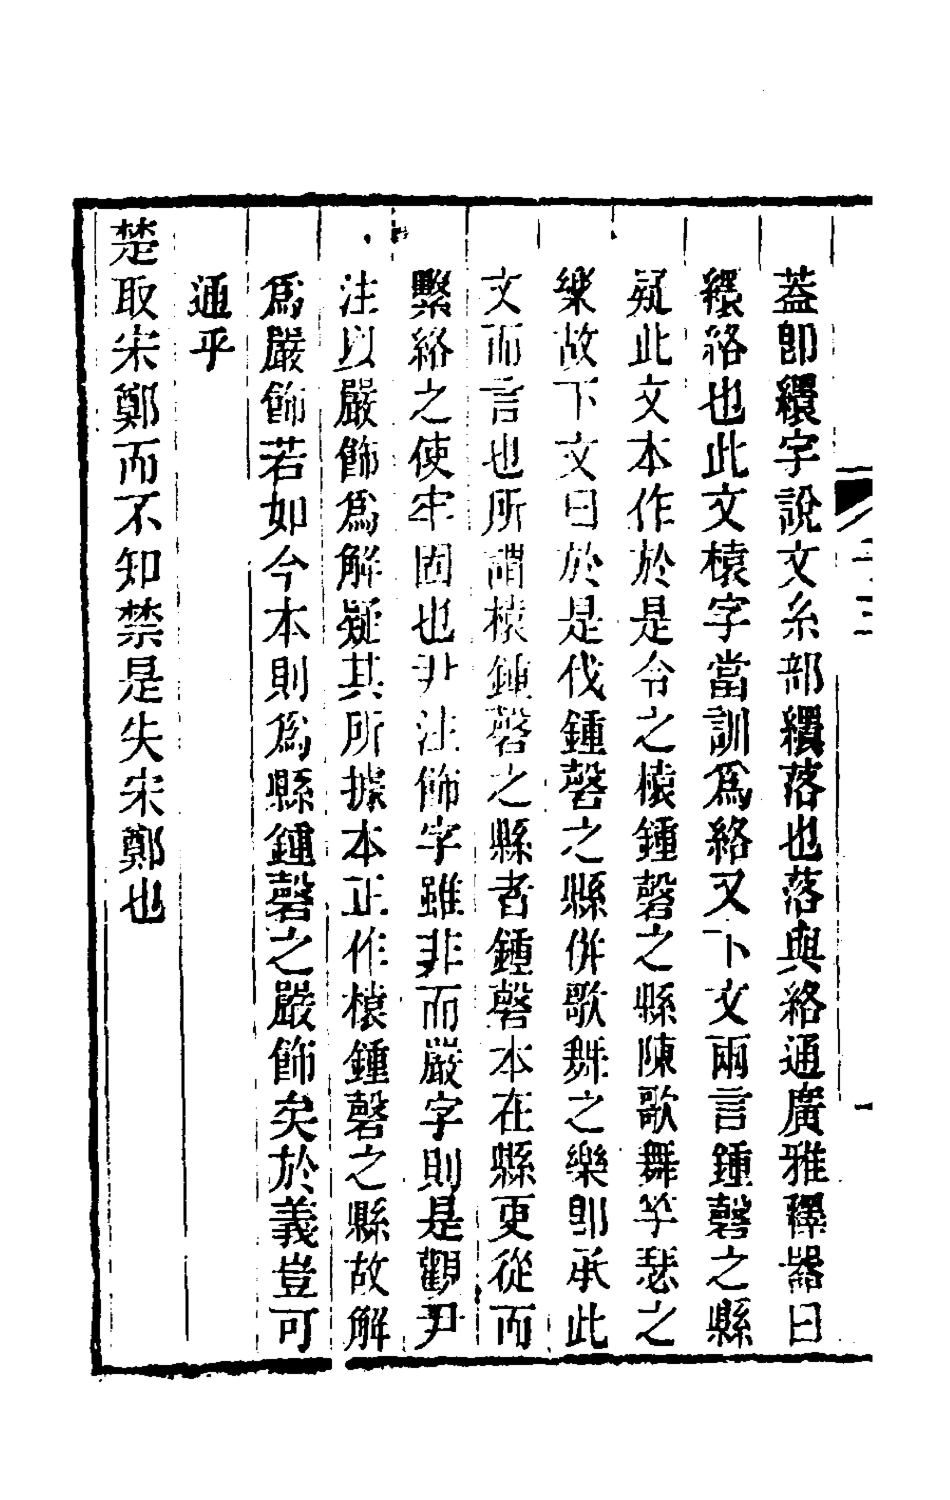 蓋卽繯字說文糸部繯落也落與絡通廣雅釋器曰
繯絡也此文榬字當訓爲絡又下文兩言鍾磬之縣
疑此文本作於是令之榬鍾磬之縣陳歌舞竽瑟之
樂故下文曰於是伐鍾磬之縣併歌舞之樂卽承此
文而言也所謂榬鍾磬之縣者鍾磬本在縣更從而
繫絡之使牢固也尹注飾字雖非而嚴字則是觀尹
注以嚴飾爲解疑其所據本正作榬鍾磬之縣故解
爲嚴飾若如今本則爲縣鍾磬之嚴飾矣於義豈可
通乎
楚取宋鄭而不知禁是失宋鄭也